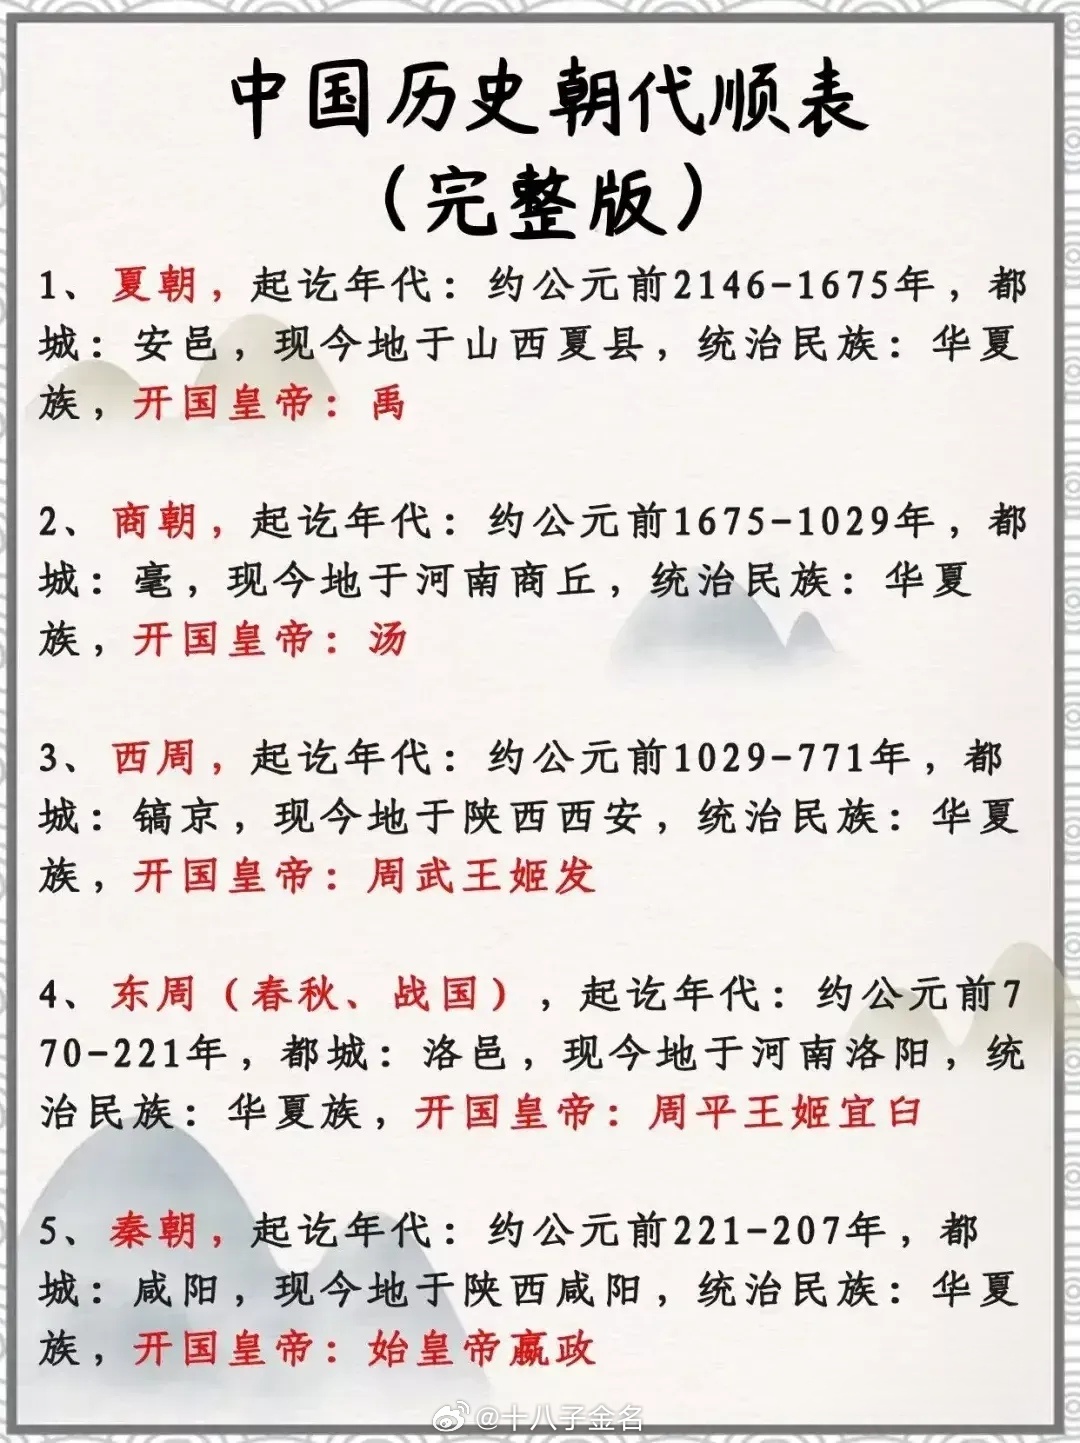 中国历史朝代顺表
（完整版）
1、夏朝，起讫年代：约公元前2146-1675年，都
城：安邑，现今地于山西夏县，统治民族：华夏
族，开国皇帝：禹
2、商朝，起讫年代：约公元前1675-1029年，都
城：毫，现今地于河南商丘，统治民族：华夏
族，开国皇帝：汤
3、西周，起讫年代：约公元前1029-771年，都
城：镐京，现今地于陕西西安，统治民族：华夏
族，开国皇帝：周武王姬发
4、东周（春秋、战国），起讫年代：约公元前7
70-221年，都城：洛邑，现今地于河南洛阳，统
治民族：华夏族，开国皇帝：周平王姬宜臼
5、秦朝，起讫年代：约公元前221-207年，都
城：咸阳，现今地于陕西咸阳，统治民族：华夏
族，开国皇帝：始皇帝嬴政
@十八子金名